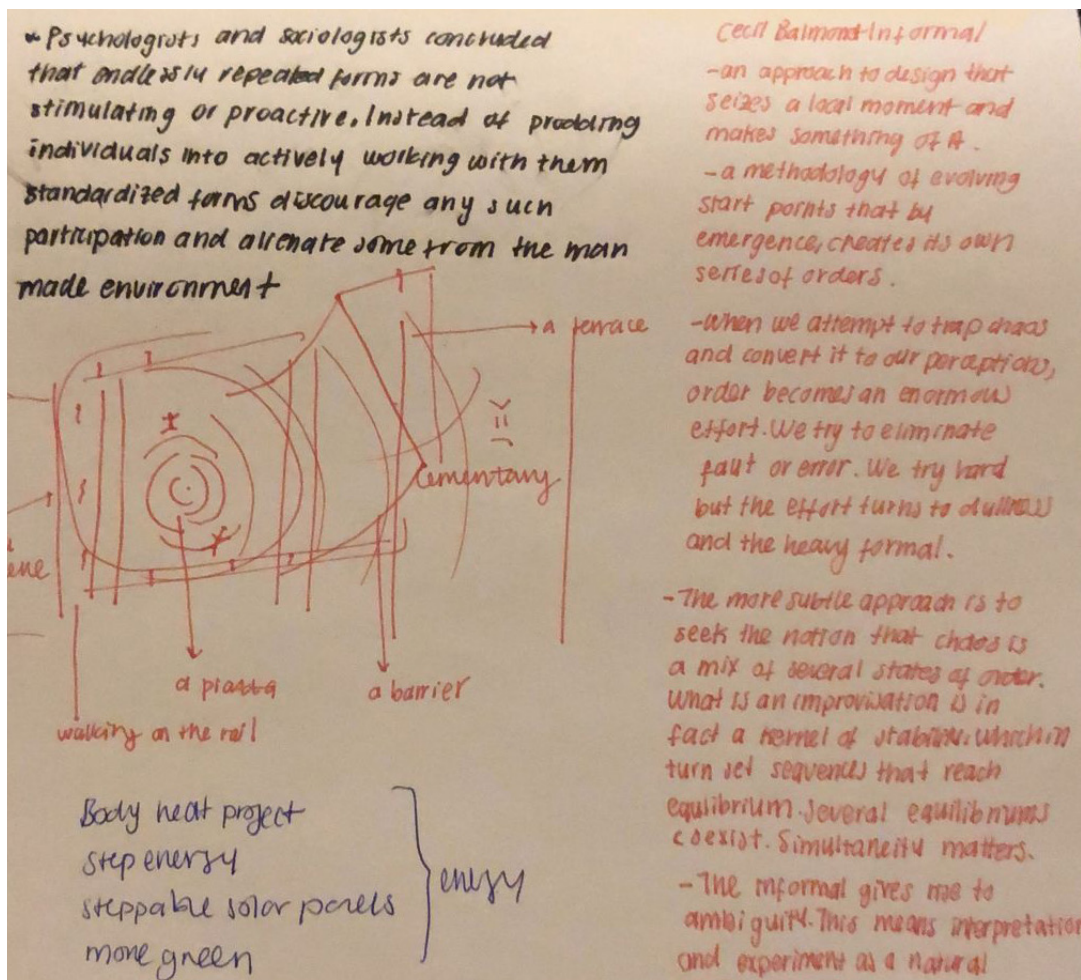 * Psychologists and sociologists concluded
that endlessly repeated forms are not
stimulating or proactive. Instead of prodding
individuals into actively working with them
standardized forms discourage any such
participation and alienate some from the man
made environment
a terrace
cementary
a piazza
a barrier
walking on the rail
Body heat project
step energy
steppable solar panels
more green
energy
Cecil Balmond-Informal
-an approach to design that
seizes a local moment and
makes something of it.
-a methodology of evolving
start points that by
emergence, creates its own
series of orders.
-When we attempt to trap chaos
and convert it to our perceptions,
order becomes an enormous
effort. We try to eliminate
faut or error. We try hard
but the effort turns to dullness
and the heavy formal.
-The more subtle approach is to
seek the notion that chaos is
a mix of several states of order.
What is an improvisation is in
fact a kernel of stability, which in
turn set sequences that reach
equlibrium. Several equilibriums
coexist. Simultaneity matters.
-The informal gives rise to
ambiguity. This means interpretation
and experiment as a natural